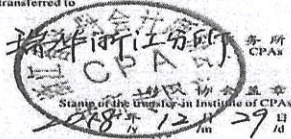 transferred to
瑞华浙江分所 务所
CPAs
CPA
协会盖章
Stamp of the transfer-in Institute of CPAs
2018年 12月 29日
/y /m /d